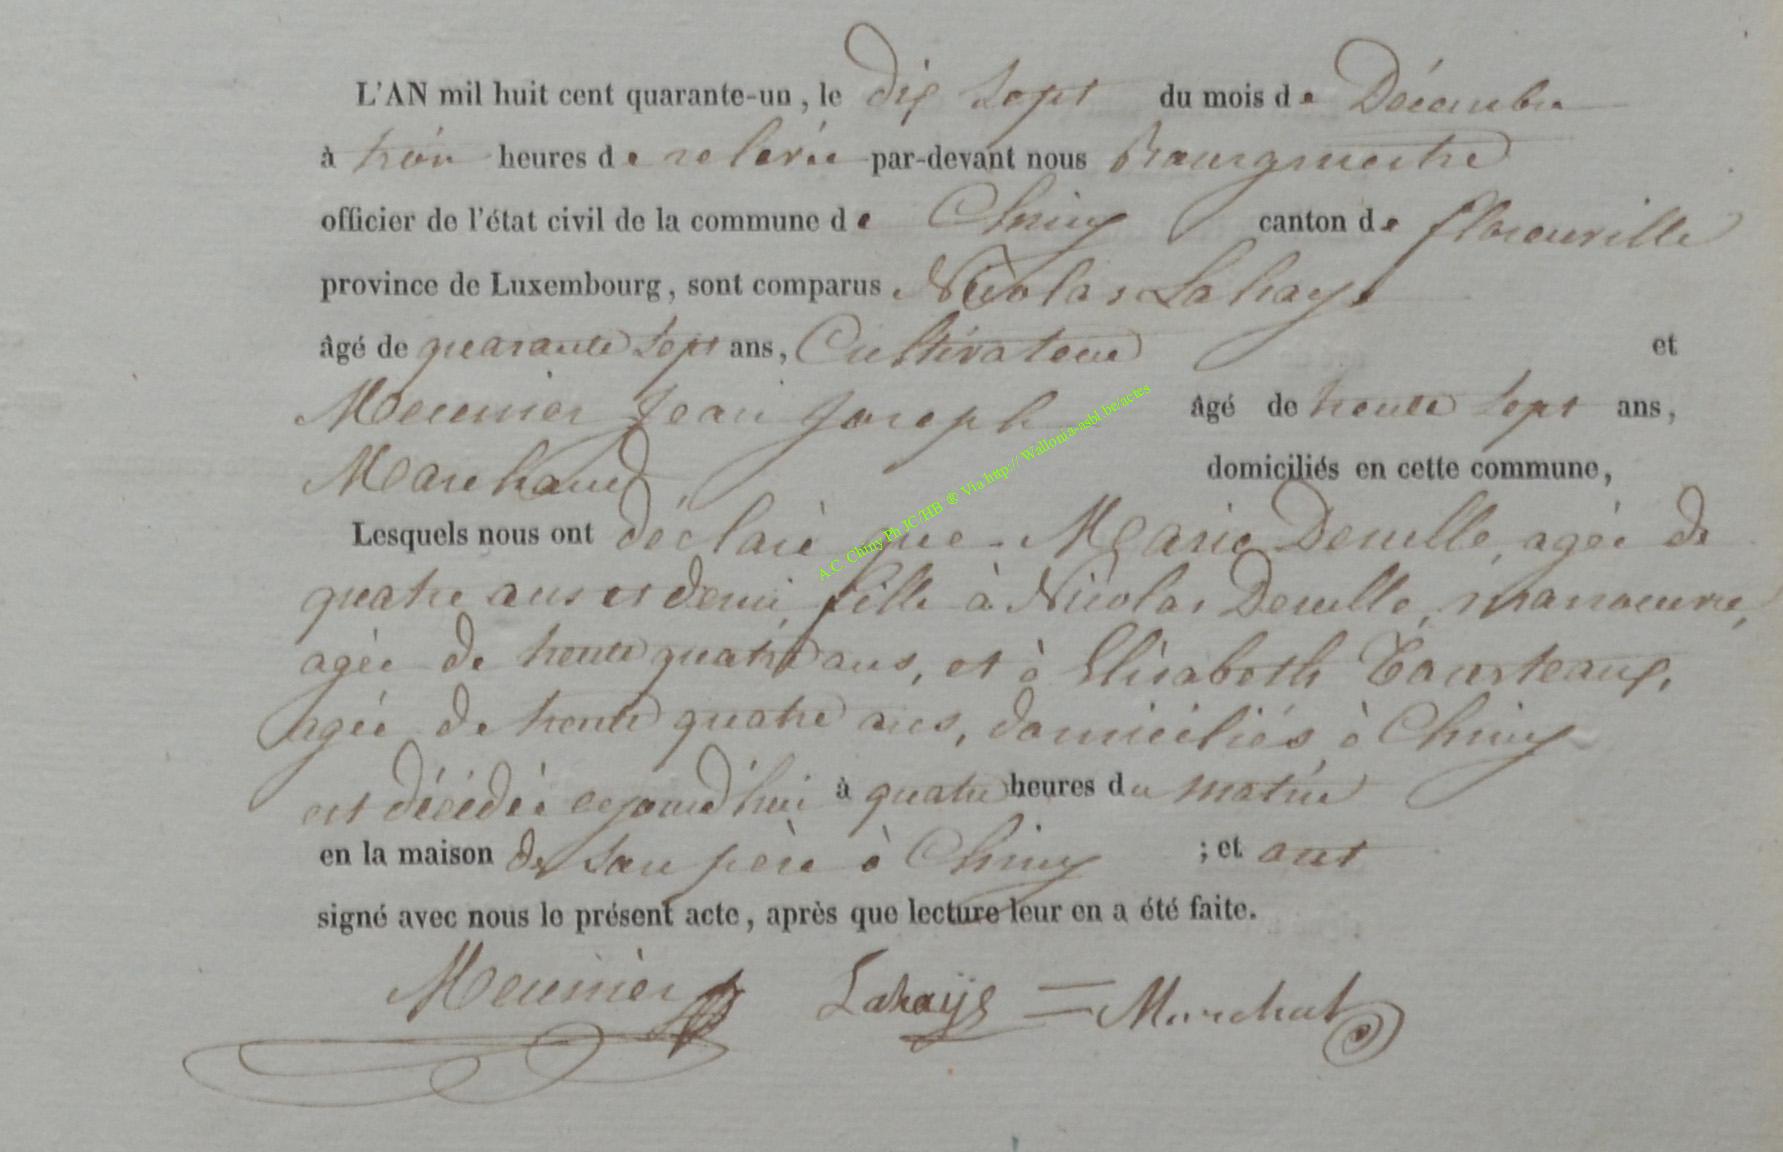 L'AN mil huit cent quarante-un, le dix sept du mois de Décembre
à trois heures de relevée par-devant nous Bourgmestre
officier de l'état civil de la commune de Chiny canton de florenville
province de Luxembourg, sont comparus Nicolas Lahaye
âgé de quarante sept ans, Cultivateur et
Meunier Jean Joseph âgé de trente sept ans,
Marchand, domiciliés en cette commune,
Lesquels nous ont déclaré que Marie Denelle, agée de
quatre ans et demi, fille à Nicolas Denelle, manoeuvre,
agée de trente quatre ans, et à Elisabeth Tourteaux,
agée de trente quatre ans, domiciliés à Chiny
est décédée cejourd'hui à quatre heures du matin
en la maison de son père à Chiny ; et ont
signé avec nous le présent acte, après que lecture leur en a été faite.
Meunier Lahaÿe = Marchal
A.C. Chiny Ph JC/HB ® Via http:// Wallonia-asbl.be/actes